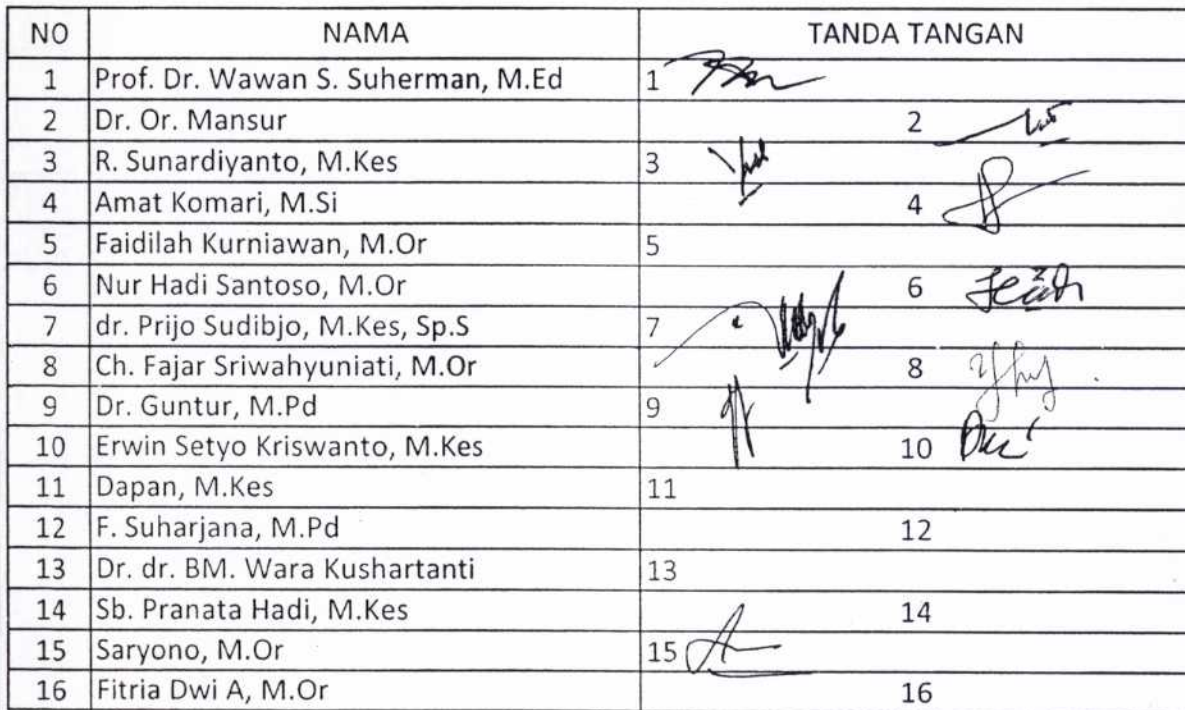 NO NAMA TANDA TANGAN
1 Prof. Dr. Wawan S. Suherman, M.Ed 1
2 Dr. Or. Mansur 2
3 R. Sunardiyanto, M.Kes 3
4 Amat Komari, M.Si 4
5 Faidilah Kurniawan, M.Or 5
6 Nur Hadi Santoso, M.Or 6
7 dr. Prijo Sudibjo, M.Kes, Sp.S 7
8 Ch. Fajar Sriwahyuniati, M.Or 8
9 Dr. Guntur, M.Pd 9
10 Erwin Setyo Kriswanto, M.Kes 10
11 Dapan, M.Kes 11
12 F. Suharjana, M.Pd 12
13 Dr. dr. BM. Wara Kushartanti 13
14 Sb. Pranata Hadi, M.Kes 14
15 Saryono, M.Or 15
16 Fitria Dwi A, M.Or 16